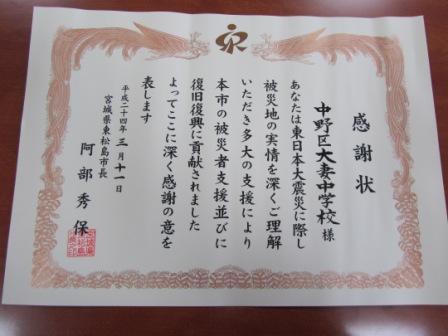 感謝状
中野区大妻中学校 様
あなたは東日本大震災に際し
被災地の実情を深くご理解
いただき多大の支援により
本市の被災者支援並びに
復旧復興に貢献されました
よってここに深く感謝の意を
表します
平成二十四年三月十一日
宮城県東松島市長
阿部秀保